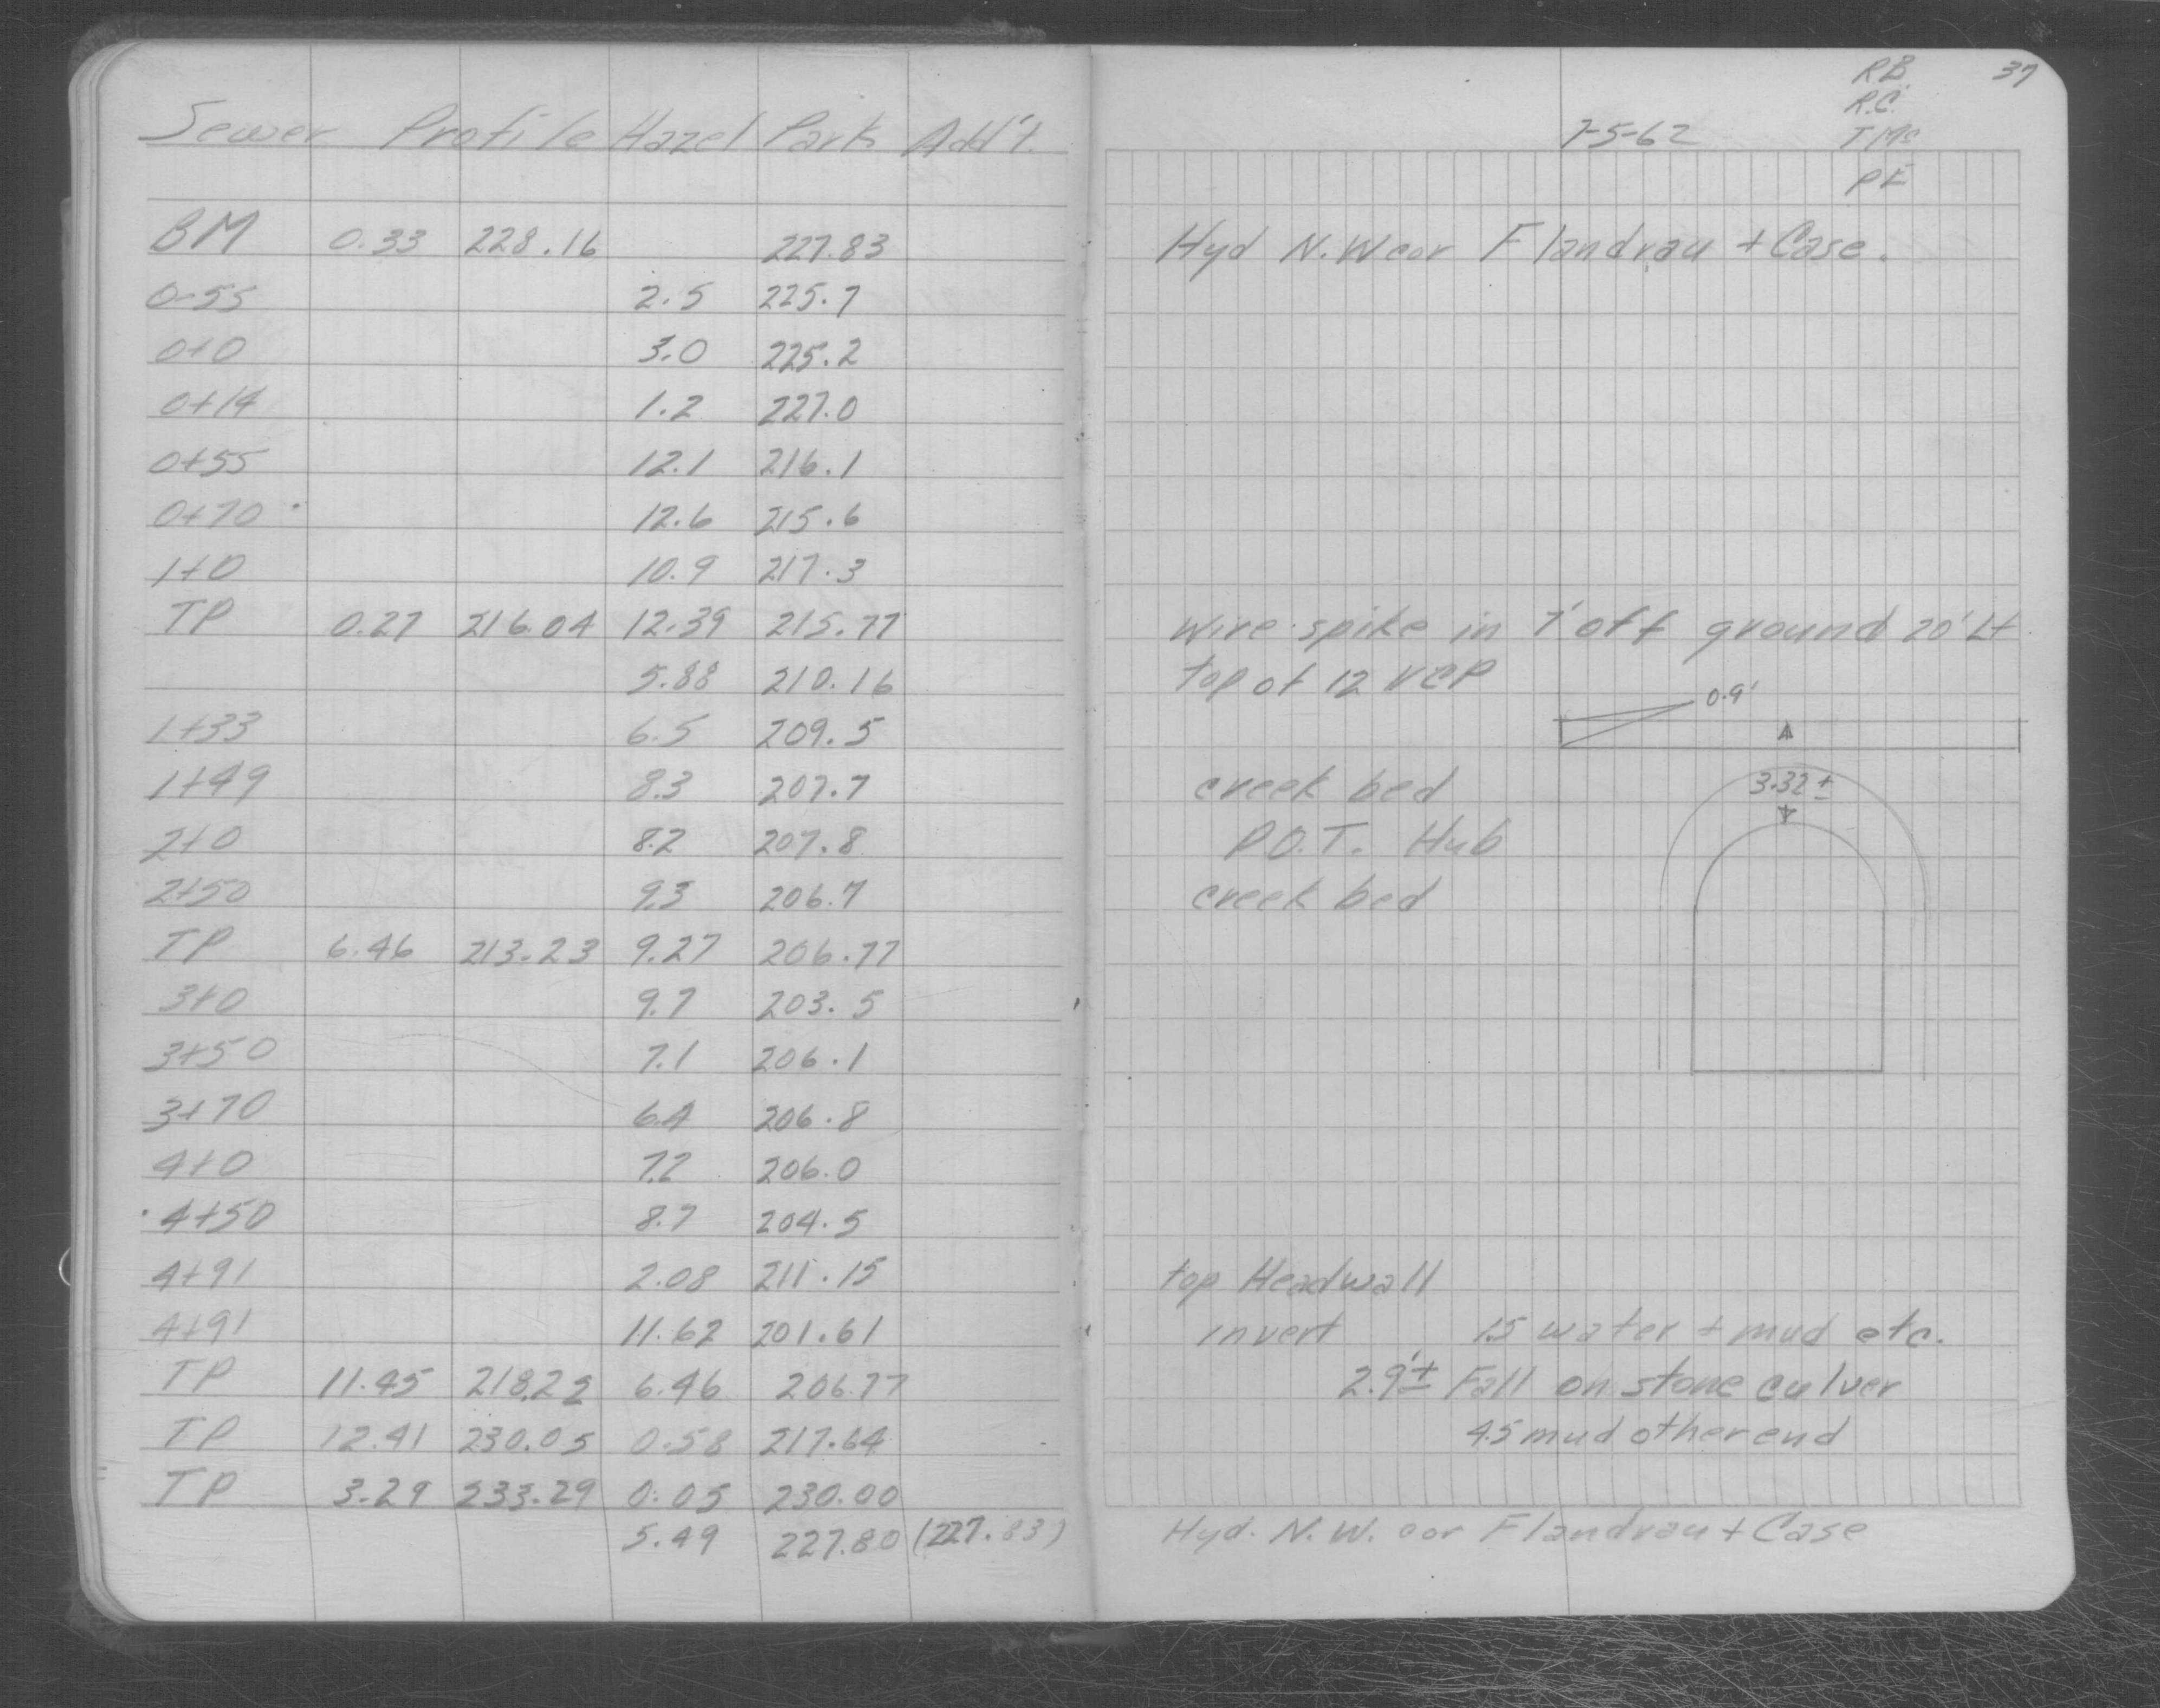 Sewer Profile Hazel Park Add't.
BM 0.33 228.16 227.83
0-55 2.5 225.7
0+0 3.0 225.2
0+14 1.2 227.0
0+55 12.1 216.1
0+70 12.6 215.6
1+0 10.9 217.3
TP 0.27 216.04 12.39 215.77
5.88 210.16
1+33 6.5 209.5
1+49 8.3 207.7
2+0 8.2 207.8
2+50 9.3 206.7
TP 6.46 213.23 9.27 206.77
3+0 9.7 203.5
3+50 7.1 206.1
3+70 6.4 206.8
4+0 7.2 206.0
4+50 8.7 204.5
4+91 2.08 211.15
4+91 11.62 201.61
TP 11.45 218.22 6.46 206.77
TP 12.41 230.05 0.58 217.64
TP 3.29 233.29 0.05 230.00
5.49 227.80 (227.83)
R.B. 37
R.C.
7-5-62 T Mc
PE
Hyd N.W cor Flandrau + Case.
Wire spike in 7' off ground 20' Lt.
top of 12 VCP
0.9'
creek bed 3.32 ±
P.O.T. Hub
creek bed
top Headwall
invert 1.5 water + mud etc.
2.9'± Fall on stone culver
4.5 mud other end
Hyd. N.W. cor Flandrau + Case